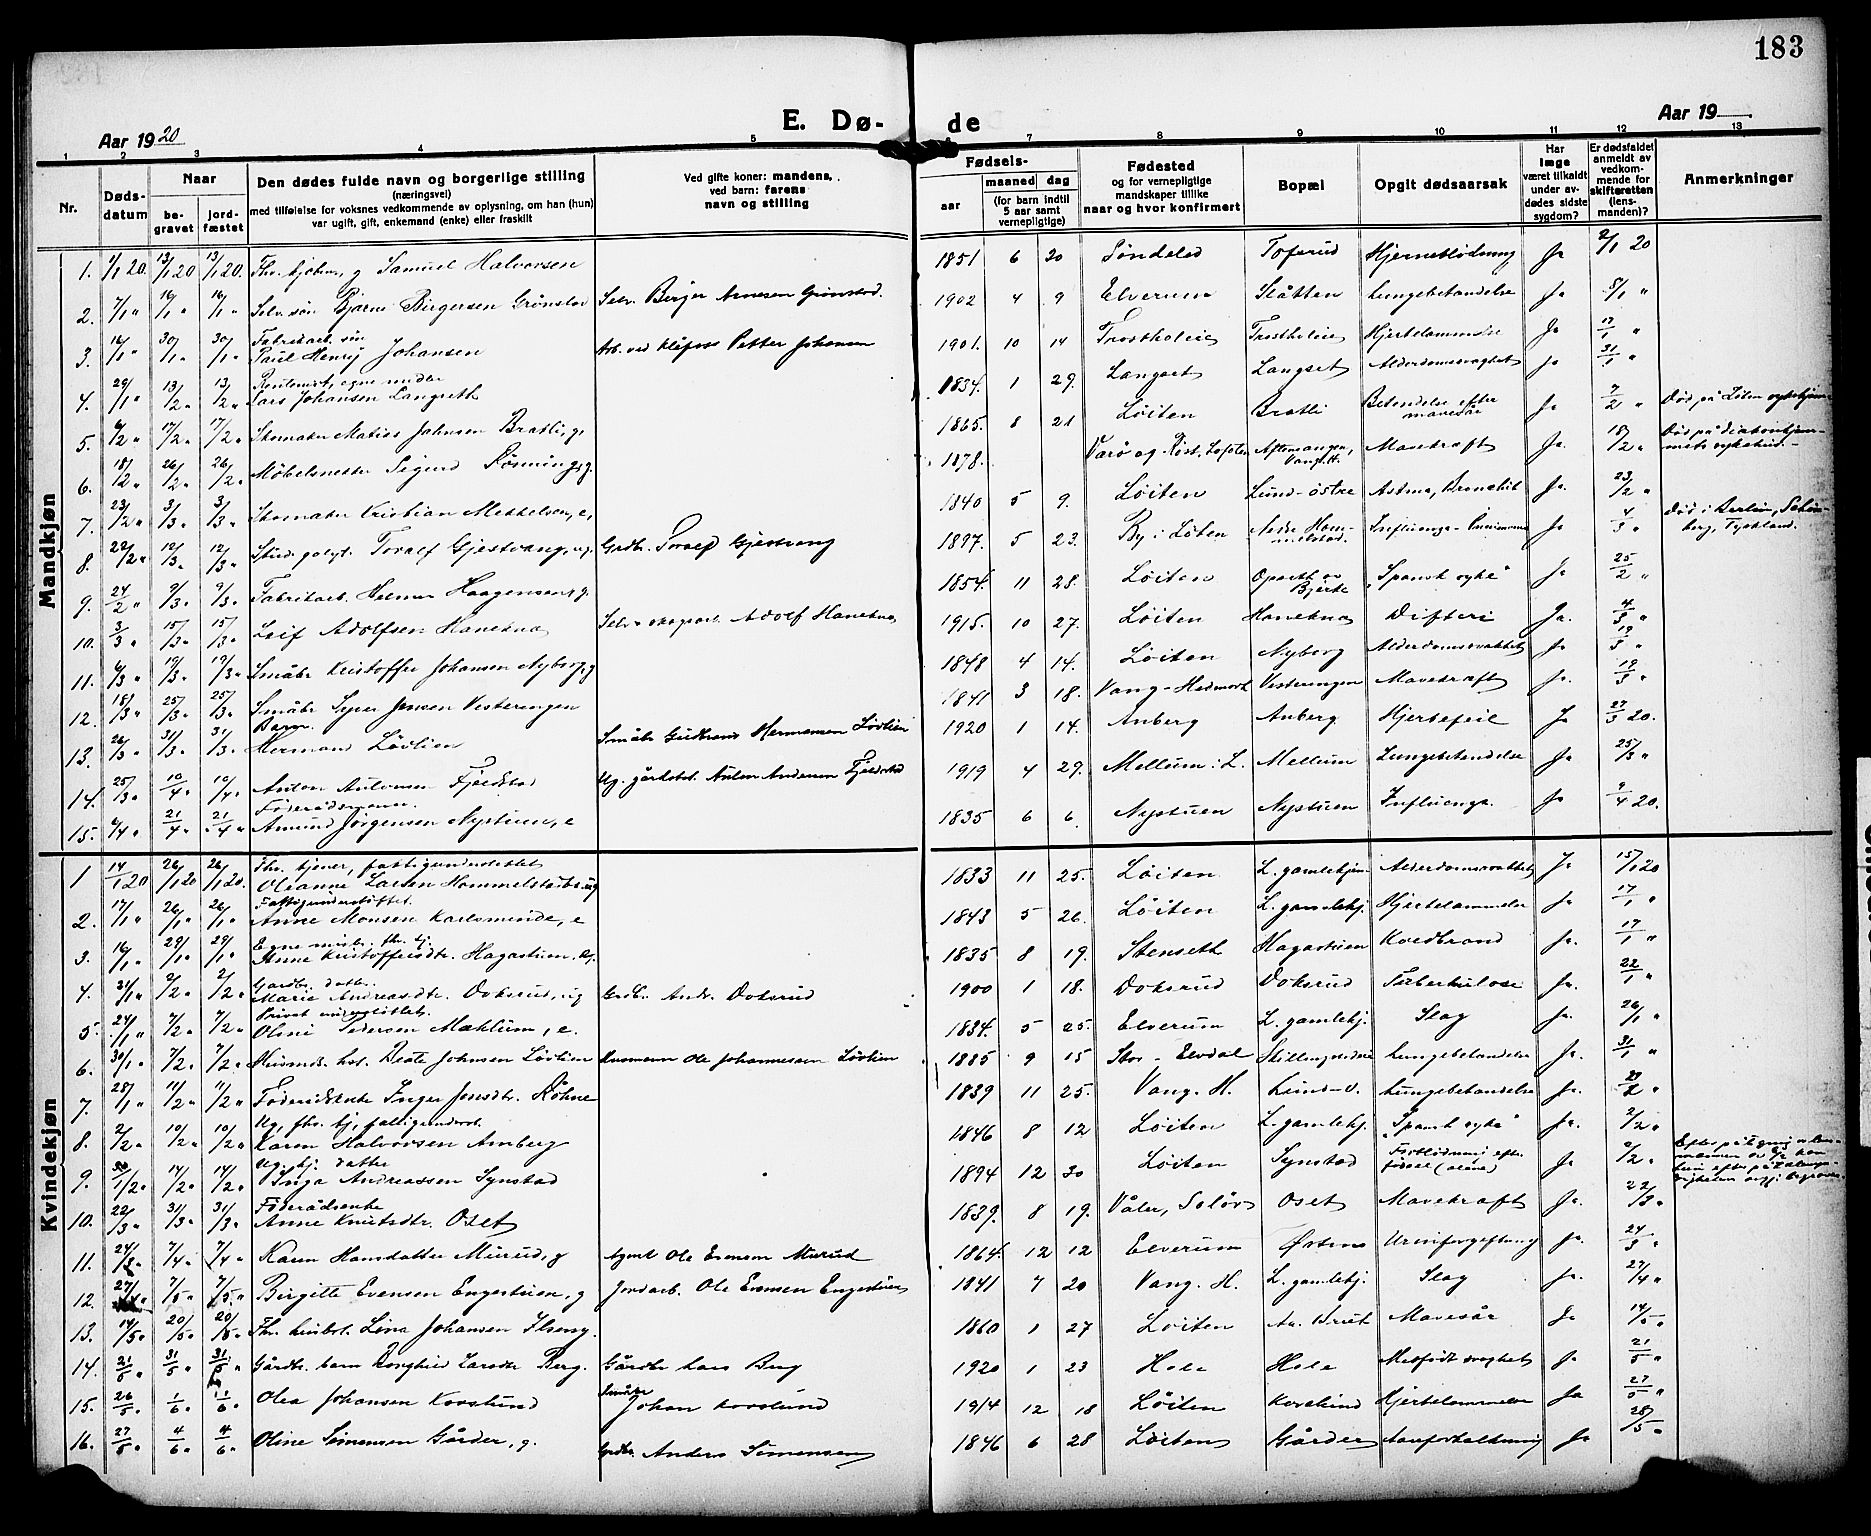 183
E. Dø- de
Aar 1920
Aar 19
1 2 3 4 5 7 8 9 10 11 12 13
Nr.
Døds-datum
Naar
be-gravet
jord-fæstet
Den dødes fulde navn og borgerlige stilling
(næringsvei)
med tilføielse for voksnes vedkommende av oplysning, om han (hun)
var ugift, gift, enkemand (enke) eller fraskilt
Ved gifte koner: mandens,
ved barn: farens
navn og stilling
Fødsels-
aar
maaned
dag
(for barn indtil
5 aar samt
vernepligtige)
Fødested
og for vernepligtige
mandskaper tillike
naar og hvor konfirmert
Bopæl
Opgit dødsaarsak
Har
læge
været tilkaldt
under av-
dødes sidste
sygdom?
Er dødsfaldet
anmeldt av
vedkom-
mende for
skifteretten
(lens-
manden)?
Anmerkninger
Mandkjøn
1. 1/1 20. 13/1 20 13/1 20. Samuel Halvorsen 1851 6 20 Søndeled Toferud Hjerneblødning Ja 2/1 20
2. 7/1 " 16/1 " 16/1 " Selv. søn Bjarne Birgersen Grønstad Selv. Berger Arnesen Grønstad. 1902 4 9 Elverum Slåtten Lungebetændelse Ja 8/1 "
3. 16/1 " 30/1 " 30/1 " Fabrikarb. søn
Paul Henry Johansen Arb. ved Klefoss Petter Johansen 1901. 10 14 Trostholeie Trostholeie Hjertelammelse Ja "
4. 29/1 " 13/2 " 13/2 " egne midler
Lars Johansen Langseth 1834. 1 29. Langset Langset Alderdomssvaghet Ja 31/1 "
5. 6/2 " 17/2 " 17/2 " Skomaker Matias Johnsen Bratli, g. 1865. 8 21 Løiten Bratli Betendelse efter
mavesår Ja 7/2 " Død på Løten
6. 18/2 " 26/2 " 26/2 " Møbelsnekker Sigurd Rønning, g. 1878. Værø og Røst, Lofoten Aftensangen,
Vang H. Mavekræft Ja. 18/2 " Død på diakonhjem-
mets sykehus.
7. 23/2 " 3/3 " 3/3 " Skomaker Kristian Mikkelsen, e, 1840 5 9. Løiten Lund-østre Astma, Bronchit Ja. 23/2 "
8. 22/2 " 12/3 " 12/3 " Stud. polyt. Toralf Gjestvang, ug. Grdbr. Toralf Gjestvang 1897. 5 23. By i Løten Influenza - Ja 4/3 " Død i Berlin,
Tyskland.
9. 24/2 " 9/3 " 9/3 " Fabrikarb. Helmer Haagensen, g. 1854. 11 28. Løiten
Bjerke "Spansk syke" Ja 25/2 "
10. 3/3 " 15/3 " 15/3 " Leif Adolfsen Hanekna Selv. Adolf Hanekna 1915. 10 27. Løiten Hanekna Difteri Ja. 4/3 "
11. 6/3 " 19/3 " 19/3 " Småbr. Kristoffer Johansen Nyborg, g 1848 4 14. Løiten Nyborg Alderdomssvakhet Ja 19/3 "
12. 18/3 " 25/3 " 25/3 " Småbr. Syver Jensen Vesterengen 1841 3 18. Vang-Hedmark Vesterengen Mavekræft Ja. 19/3 "
13. 26/3 " 31/3 " 31/3 " Barn
Hermand Løvlien Småbr. Gudbrand Hermansen Løvlien 1920 1 14. Anberg Anberg Hjertefeil Ja 27/3 20.
14. 25/3 " 10/4 " 10/4 " Anton Antonsen Fjeldstad Ug. gårdsbst. Anton Andersen Fjeldstad 1919 4 29. Mellum i L. Mellum Lungebetændelse Ja 25/3 "
15. 6/4 " 21/4 " 21/4 " Føderådsmann.
Amund Jørgensen Nystuen, e 1835 6 6. Nystuen Nystuen Influenza. Ja 9/4 20.
Kvindekjøn
1 14/1 20 26/1 20 26/1 20. Fhv. tjener, fattigunderstøttet
Oleanne Larsen Hommelstad, ug 1833 11 25. Løiten L. gamlehjem Alderdomssvakhet Ja 15/1 20
2. 17/1 " 26/1 " 26/1 " Fattigunderstøttet.
Anne Monsen Karlsminde, e 1843 5 26. Løiten L. gamlehj. Hjertelammelse Ja 17/1 "
3. 16/1 " 29/1 " 29/1 " Egne midler. fhv. tj.
Anne Kristoffersdtr. Hagastuen. ug. 1835 8 19. Stenseth Hagastuen Koldbrand Ja. 17/1 "
4. 21/1 " 2/2 " 2/2 " Gårdbr. datter.
Marie Andreasdtr. Doksrud, ug Grdbr. Andr. Doksrud 1900 1 18. Doksrud Doksrud Tuberkulose Ja. 22/1 "
5. 24/1 " 7/2 " 7/2 " Privat understøttet.
Oline Pedersen Mæhlum, e. 1834. 5 25. Elverum L. gamlehj. Slag Ja. 26/1 "
6. 30/1 " 7/2 " 7/2 " Beate Johnsen Løvlien Husmann Ole Johannessen Løvlien 1885 9 15 Stor-Elvdal Lungebetændelse Ja. 31/1 "
7. 28/1 " 11/2 " 11/2 " Føderådsenke Inger Jensdtr. Røhne 1839 11 25. Vang. H. Lund-v. Lungebetændelse Ja. "
8. 2/2 " 10/2 " 10/2 " Ug, fhv. tj, fattigunderst.
Karen Halvorsen Amberg 1846 8 12 Løiten L. gamlehj. "Spansk syke" Ja. 2/2 "
9. 14/2 " 14/2 " Ug. tj. datter
Inga Andreassen Synstad 1894 12 30 Løiten Synstad Forblødning efter
fødsel Ja
10. 22/3 " 31/3 " 31/3 " Føderådsenke
Anne Knutsdtr. Oset 1839. 8 19. Våler, Solør Oset Mavekræft Ja. 22/3 "
11. 24/3 " 7/4 " 7/4 " Karen Hansdatter Murud, g Ole Evensen Murud 1864. 12 12 Elverum Urinforgiftning Ja. 24/3 "
12. 27/4 " 7/5 " 7/5 " Birgitte Evensen Engestuen, g Jordarb. Ole Evensen Engestuen 1841 7 20 Vang. H. L. gamlehj. Slag Ja. 27/4 "
13. 14/5 " 20/5 " 20/5 " Lina Johansen Ilseng. 1860 1 27 Løiten Mavesår Ja 14/5 "
14. 21/5 " 31/5 " 31/5 " Gårdbr. barn Borghild Larsdtr Berg. Gårdbr Lars Berg 1920 1 23 Hole Hole Medfødt svaghet Ja 21/5 "
15. 26/5 " 1/6 " 1/6 " Olea Johansen Korslund Småbr
Johan Korslund 1914 12 18 Løiten Korslund Hjertelammelse Ja 27/5 "
16. 27/5 " 4/6 " 4/6 " Oline Simensen Gårder, g. Grdbr. Anders Simensen 1846 6 28 Løiten Gårder Aareforkalkning Ja 28/5 "